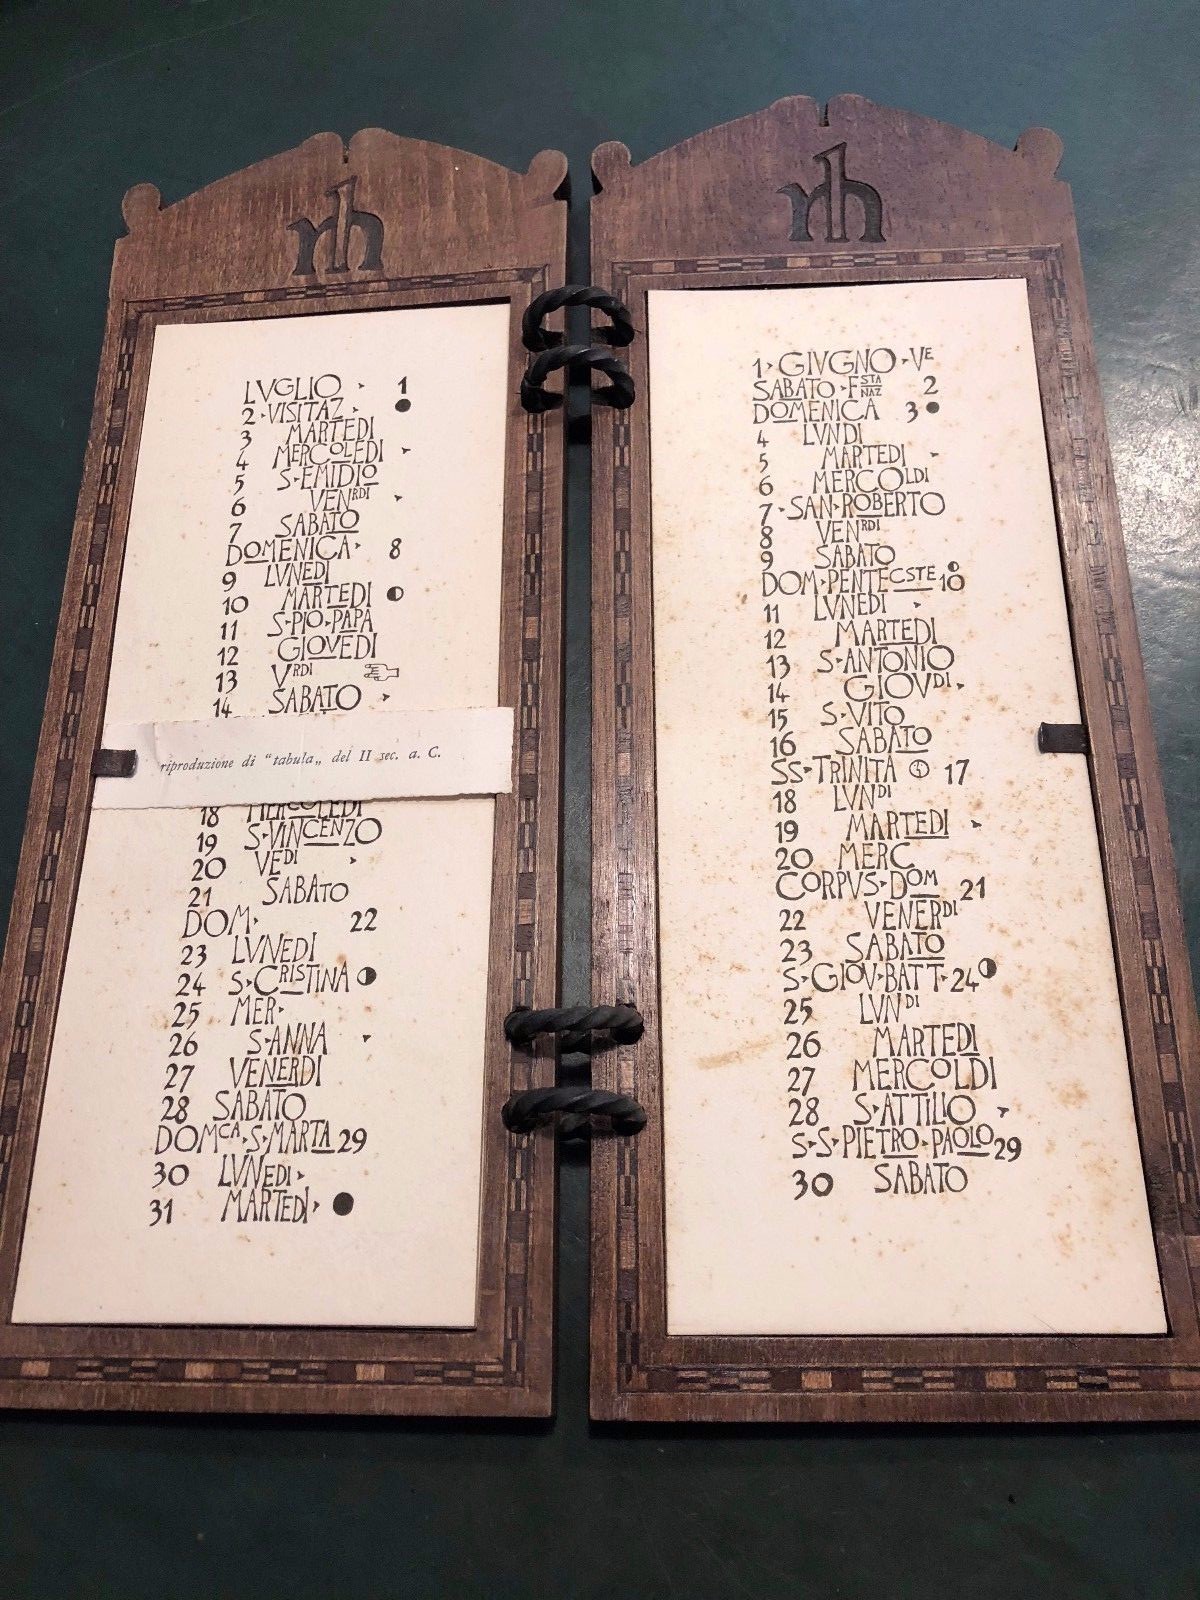 rh
LVGLIO 1
2 VISITAZ
3 MARTEDI
4 MERCOLEDI
5 S·EMIDIO
6 VENRDI
7 SABATO
DOMENICA 8
9 LVNEDI
10 MARTEDI
11 S·PIO·PAPA
12 GIOVEDI
13 VRDI
14 SABATO
riproduzione di "tabula„ del II sec. a. C.
18 MERCOLEDI
19 S·VINCENZO
20 VEDI
21 SABATO
DOM· 22
23 LVNEDI
24 S·CRISTINA
25 MER·
26 S·ANNA
27 VENERDI
28 SABATO
DOMCA·S·MARTA 29
30 LVNEDI·
31 MARTEDI·
rh
1·GIVGNO·VE
SABATO·FSTA NAZ 2
DOMENICA 3
4 LVNDI
5 MARTEDI
6 MERCOLDI
7·SAN·ROBERTO
8 VENRDI
9 SABATO
DOM·PENTECSTE 10
11 LVNEDI
12 MARTEDI
13 S·ANTONIO
14 GIOVDI·
15 S·VITO
16 SABATO
SS·TRINITA 17
18 LVNDI
19 MARTEDI
20 MERC
CORPVS·DOM 21
22 VENERDI
23 SABATO
S·GIOV·BATT·24
25 LVNDI
26 MARTEDI
27 MERCOLDI
28 S·ATTILIO
S·S·PIETRO·PAOLO 29
30 SABATO